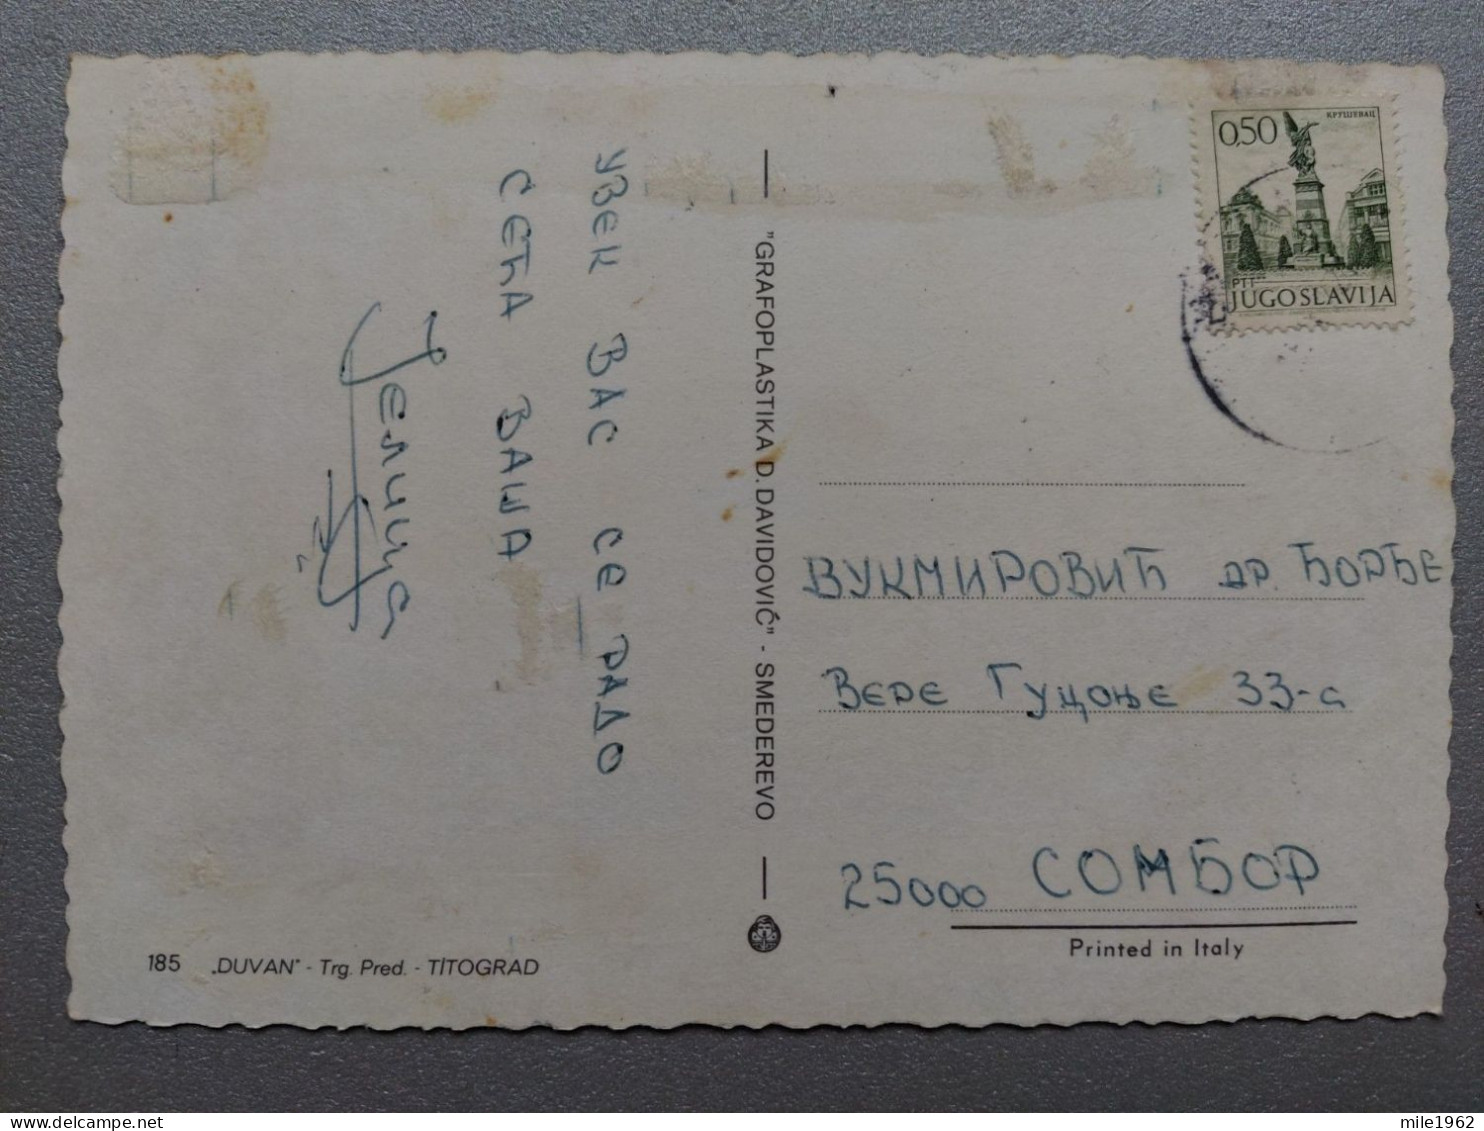 УВЕК ВАС СЕ РАДО
СЕЋА ВАША
Јелица
185 „DUVAN" - Trg. Pred. - TITOGRAD
"GRAFOPLASTIKA D. DAVIDOVIĆ" - SMEDEREVO
0,50
КРУШЕВАЦ
PTT
JUGOSLAVIJA
ВУКМИРОВИЋ ДР. ЂОРЂЕ
ВЕРЕ ГУЦОЊЕ 33-а
25000 СОМБОР
Printed in Italy
mile1962